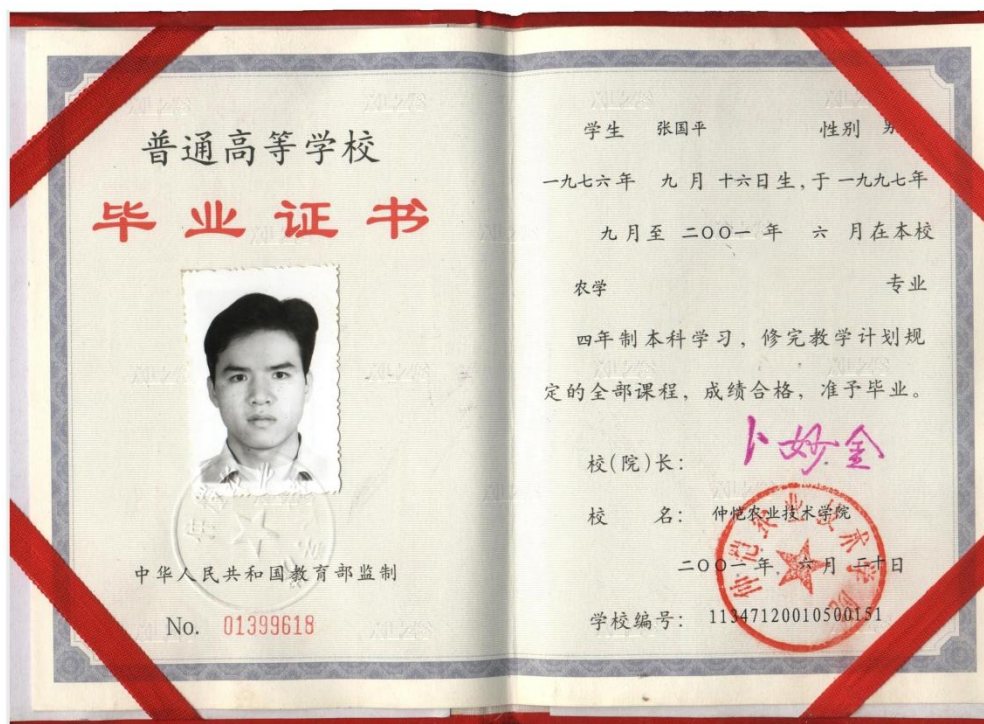 普通高等学校
毕业证书
中华人民共和国教育部监制
No. 01399618
学生 张国平 性别 男
一九七六年 九月十六日生,于一九九七年
九月至 二〇〇一年 六 月在本校
农学 专业
四年制本科学习，修完教学计划规
定的全部课程，成绩合格，准予毕业。
校(院)长： 卜妙金
校 名： 仲恺农业技术学院
二〇〇一年 六月 二十日
学校编号： 113471200105001​51
仲恺农业技术学院